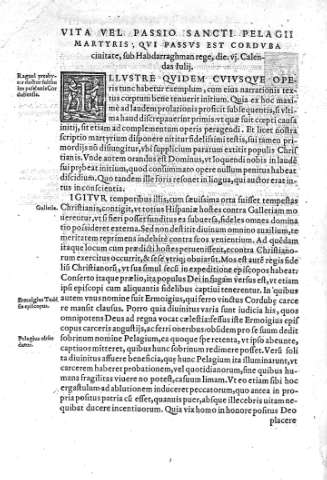 VITA VEL PASSIO SANCTI PELAGII
MARTYRIS, QUI PASSUS EST CORDUBA
ciuitate, sub Habdarraghman rege, die. vj. Calen-
das Iulij.
Raguel presby-
ter doctor
Cor-
dubensis.
ILLUSTRE QUIDEM CUIUSQUE OPE-
ris tunc habetur exemplum, cum eius narrationis tex-
tus cœptum bene tenuerit initium. Quia ex hoc maxi-
mè ad laudem prolationis prosilit subsequentis, si vlti-
ma haud discrepauerint primis: vt quæ suit cœpti causa
initij, sit etiam ad complementum operis peragendi. Et licet nostra
scriptio martyrium disponere nitatur fidelissimi testis, sui tamen pri-
mordijs nõ disiungitur, vbi supplicium paratum extitit populis Chris-
tianis. Vnde autem orandus est Dominus, vt loquendi nobis in laude
sui præbeat initium, quod consummato opere nullum penitus habeat
discidium. Quo tandem ille foris resonet in lingua, qui auctor erat in-
tus in conscientia.
IGITUR temporibus illis, cum sæuissima orta fuisset tempestas
Gallecia.
Christianis, contigit, vt totius Hispaniæ hostes contra Galleciam mo-
uerentur, vt si fieri posset funditus ea subuersa, fideles omnes domina-
tio possideret externa. Sed non destitit diuinum omnino auxilium, te-
meritatem reprimens indebitè contra suos venientium. Ad quẽdam
itaque locum cum prædicti hostes peruenissent, ex contra Christiano-
rum exercitus occurrit, & sese vtrinque obuiarũt. Mos est autẽ regis fide-
lis Christianorũ, vt sua simul secũ in expeditione episcopos habeat.
Conserto itaque prælio, ita populus Dei in fugam versus est, vt etiam
ipsi episcopi cum aliquantis fidelibus captiui tenerentur. In quibus
Ermoigius Tudẽ
sis episcopus.
autem vnus nomine fuit Ermoigius, qui ferro vinctus Cordubę carce-
re mansit clausus. Porro quia diuinitus varia sunt iudicia his, quos
omnipotens Deus ad regna vocat cælestia: fessus iste Ermoigius epi-
scopus carceris angustijs, ac ferri oneribus: obsidem pro se suum dedit
Pelagius obses
datur.
sobrinum nomine Pelagium, ea quoque spe retenta, vt ipso abeunte,
captiuos mitteret, quibus hunc sobrinum redimere posset. Verũ soli-
ta diuinitus affuere beneficia, quę hunc Pelagium ita illuminarunt, vt
carcerem haberet probationem, vel quotidianorum, sine quibus hu-
mana fragilitas viuere non potest, casuum limam. Vt eo etiam sibi hoc
ergastulum ad ablutionem induceret peccatorum, quo antea in pro-
pria positus patria cũ esset, quanuis puer, absque illecebris uitam ne-
quibat ducere incentiuorum. Quia vix homo in honore positus Deo
placere